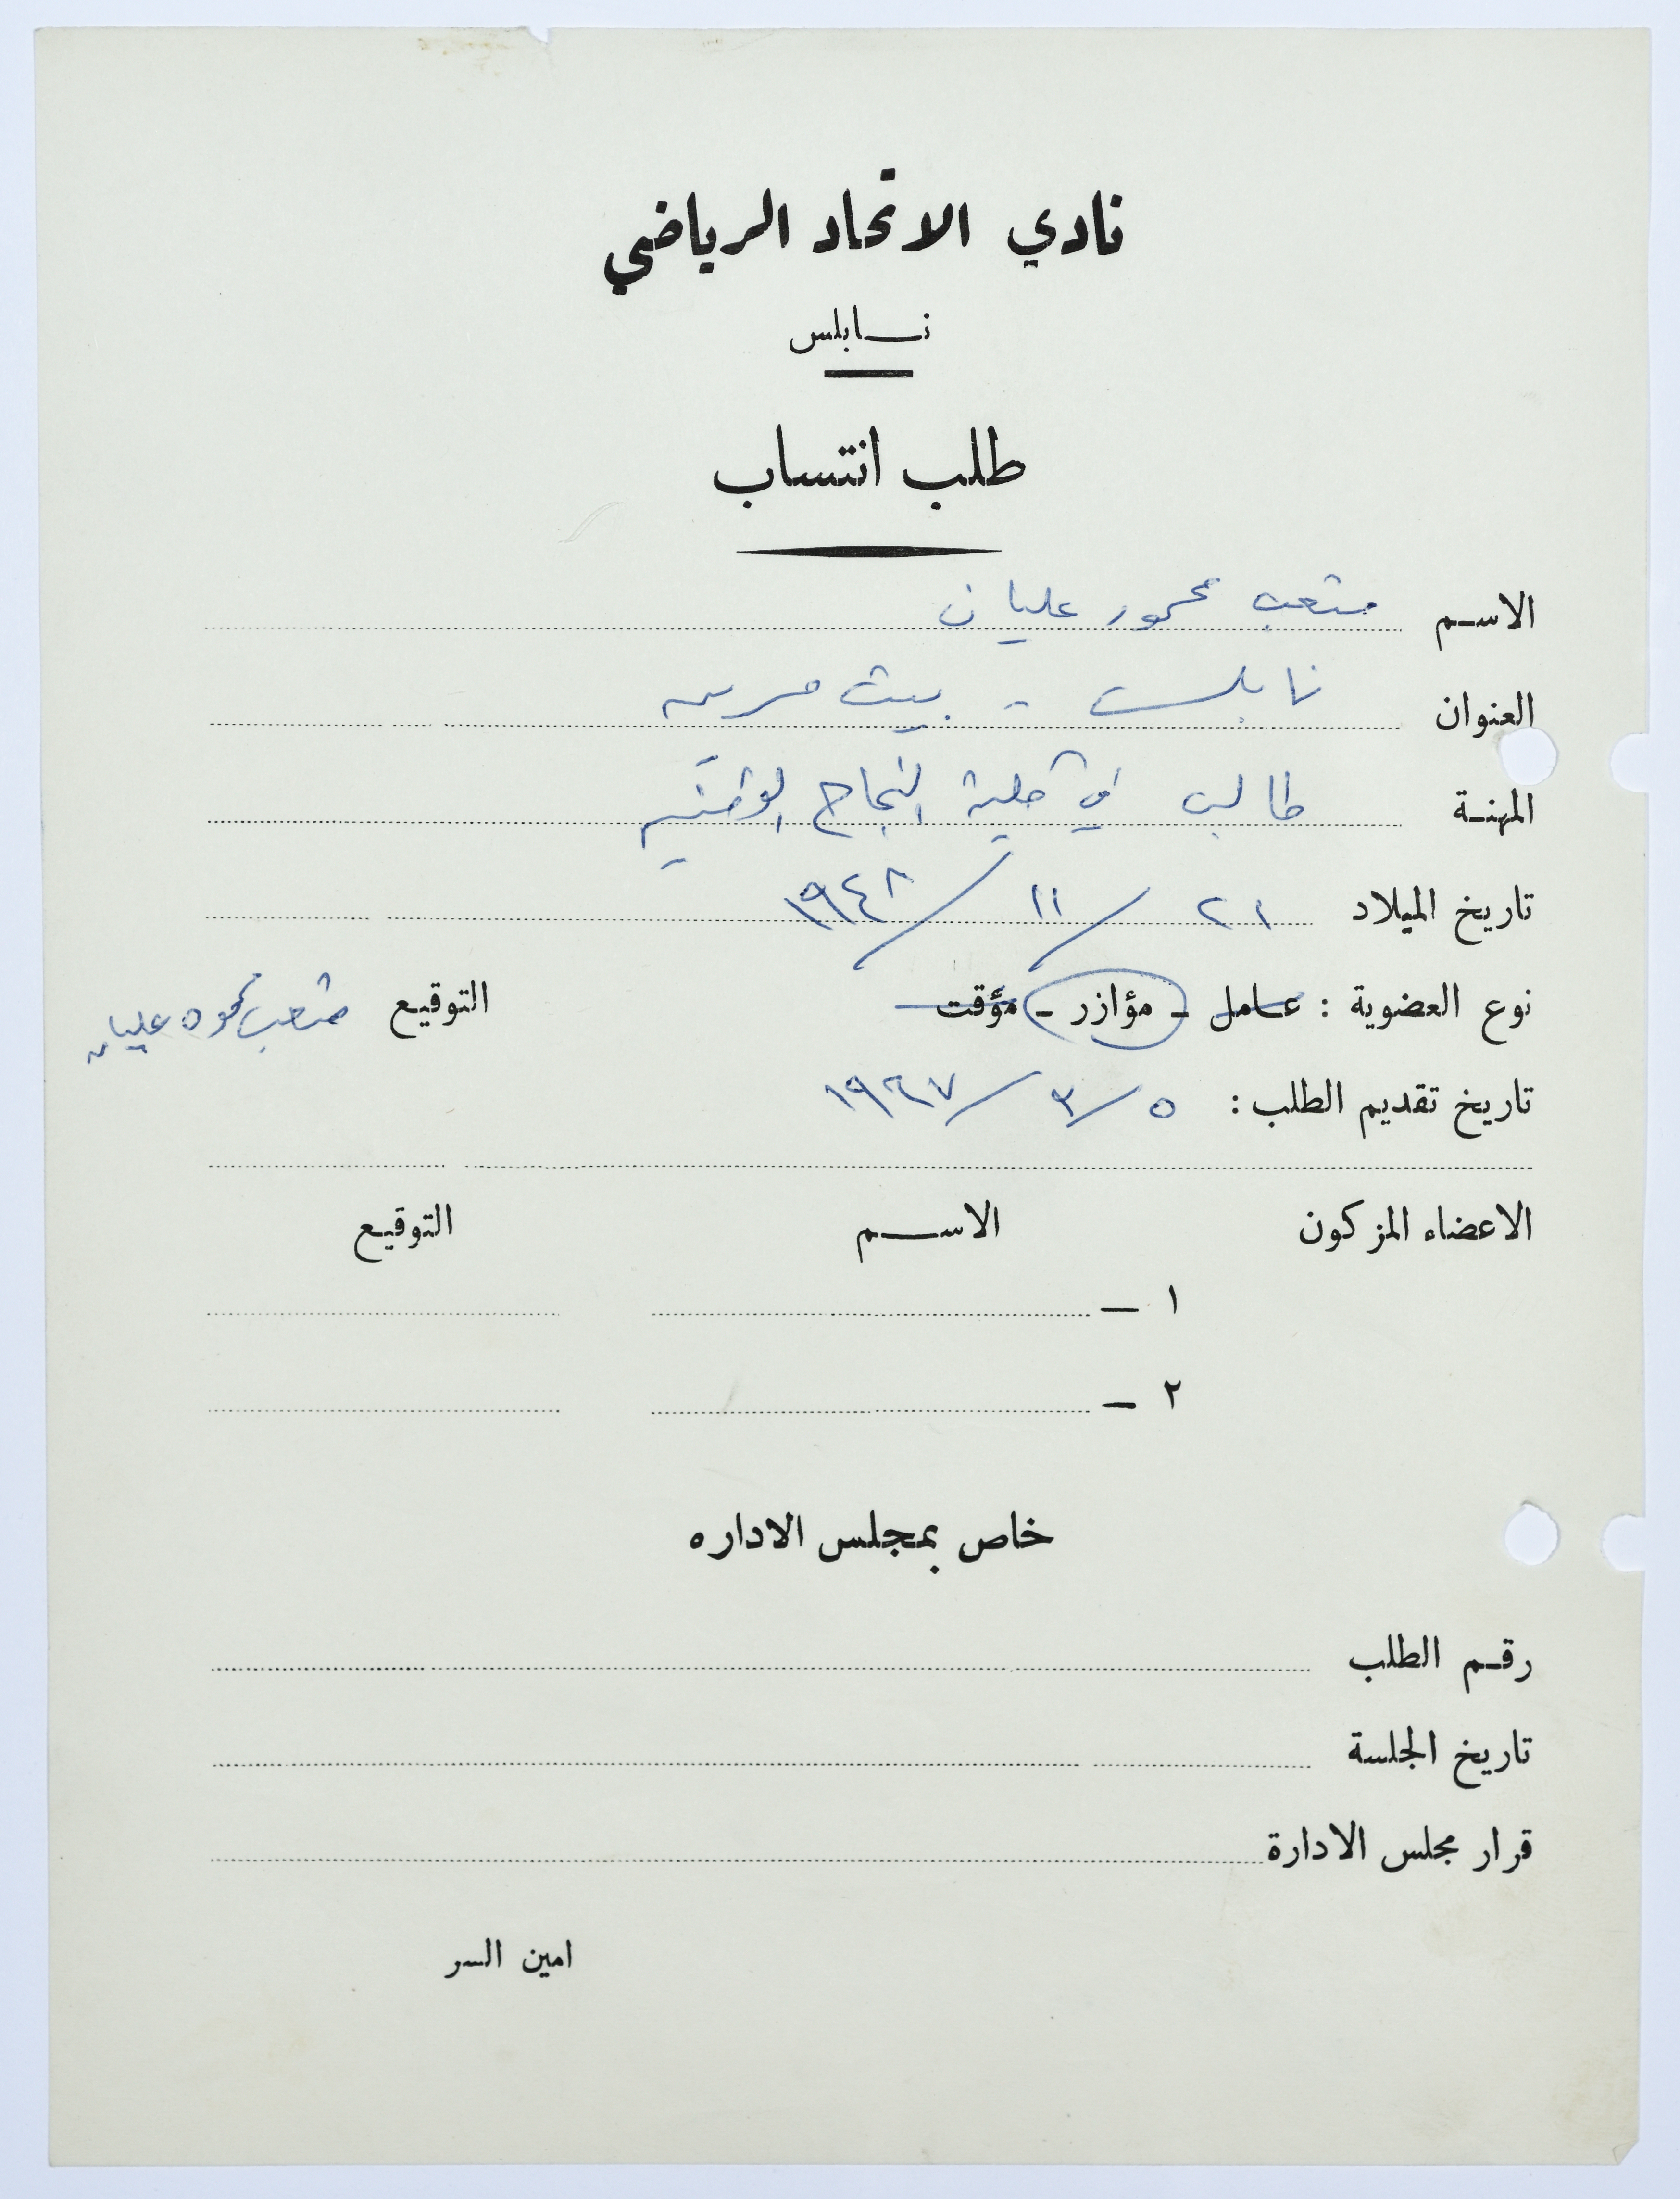 نادي الاتحاد الرياضي
نابلس
طلب انتساب
الاسم متعب محمود عليان
العنوان نابلس - بيت
المهنة طالب في كلية النجاح الوطنية
تاريخ الميلاد ٢١ / ١١ / ١٩٤٨
نوع العضوية : عامل - مؤازر - مؤقت التوقيع متعب محمود عليان
تاريخ تقديم الطلب : ٥ / ٣ / ١٩٦٧
الاعضاء المزكون الاسم التوقيع
١ —
٢ —
خاص بمجلس الاداره
رقم الطلب
تاريخ الجلسة
قرار مجلس الادارة
امين السر